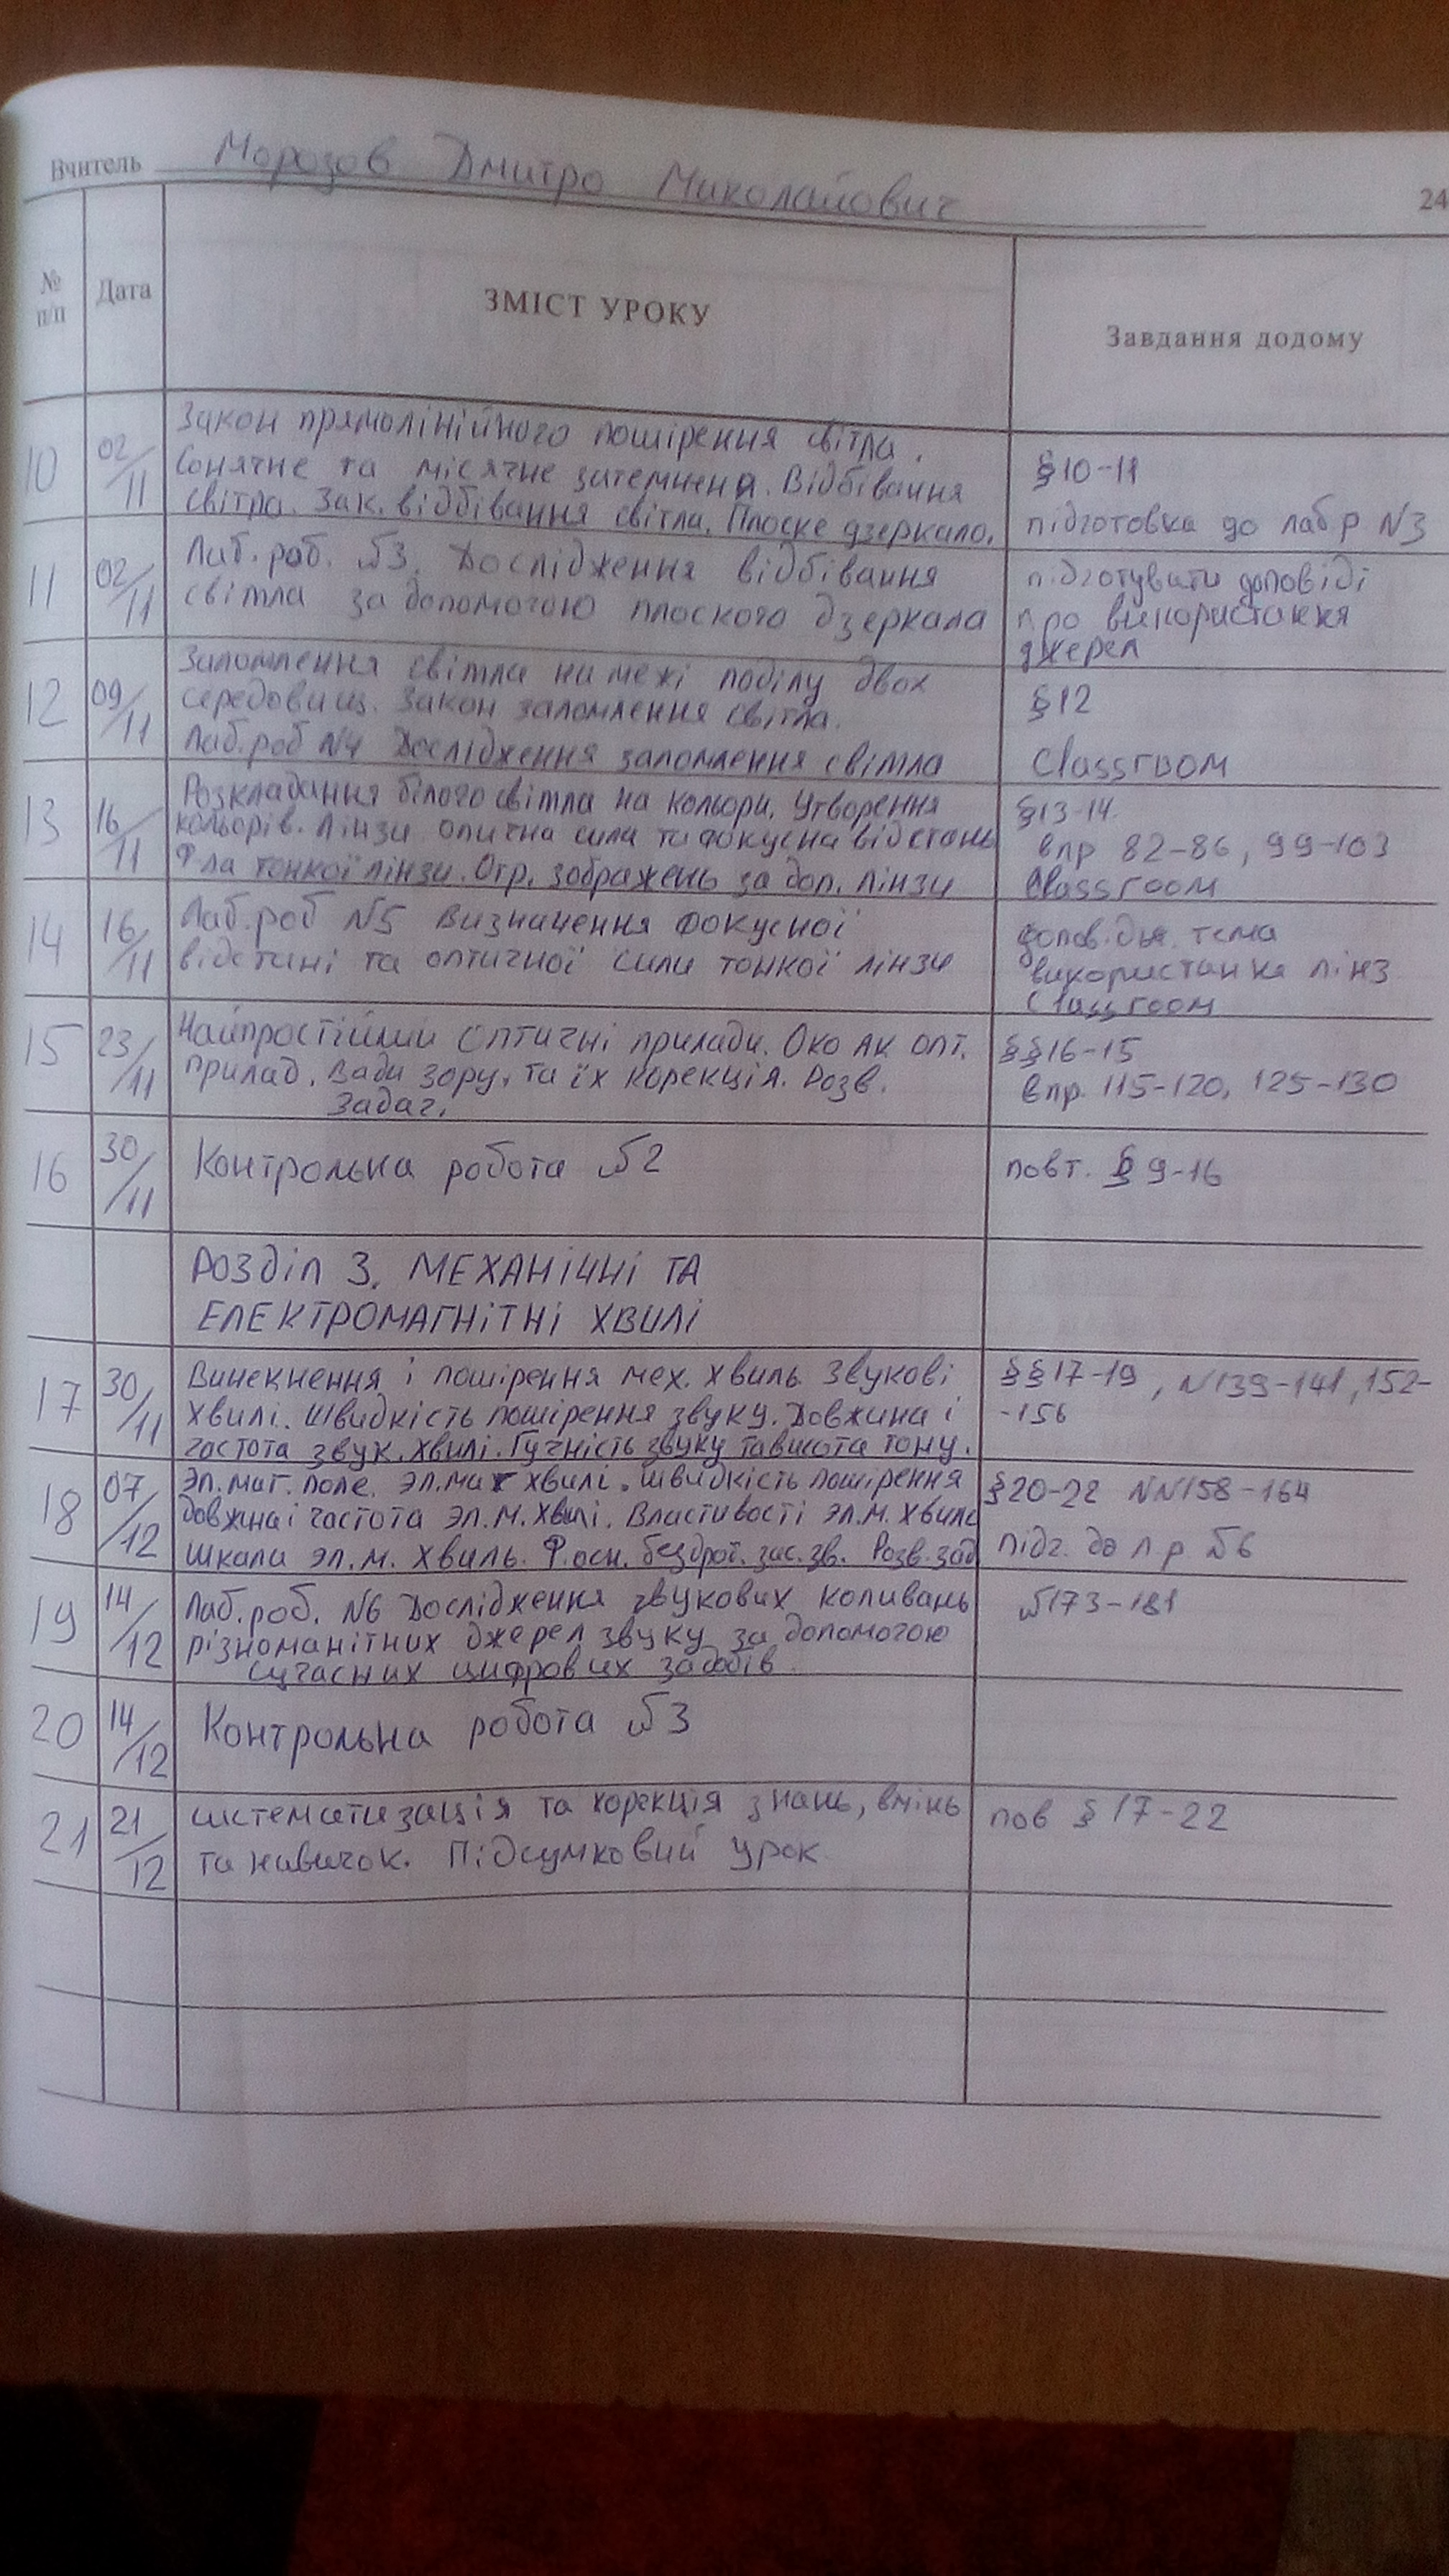 Вчитель Морозов Дмитро Миколайович
24
№ п/п
Дата
ЗМІСТ УРОКУ
Завдання додому
10
02/11
Закон прямолінійного пошірення світла.
Сонячне та місячне затемненя. Відбівання
світла. Зак. відбівання світла. Плоске дзеркало.
§10-11
підготовка до лаб р N3
11
02/11
Лаб. роб. №3. Дослідження відбівання
світла за допомогою плоского дзеркала
підготувати доповіді
про використання
джерел
12
09/11
Заломлення світла на межі поділу двох
середовищ. Закон заломлення світла.
Лаб. роб N4 Дослідження заломлення світла
§12
Classroom
13
16/11
Розкладання білого світла на кольори. Утворення
кольорів. Лінзи оптична сила та фокусна відстань
Ф-ла тонкої лінзи. Отр. зображень за доп. лінзи
§13-14.
впр 82-86, 99-103
Classroom
14
16/11
Лаб. роб N5 Визначення фокусної
відстані та оптичної сили тонкої лінзи
тема
використання лінз
Classroom
15
23/11
Найпростійши оптичні прилади. Око як опт.
прилад. Вади зору, та їх корекція. Розв.
задач.
§§16-15
впр. 115-120, 125-130
16
30/11
Контрольна робота №2
повт. § 9-16
Розділ 3. МЕХАНІЧНІ ТА
ЕЛЕКТРОМАГНІТНІ ХВИЛІ
17
30/11
Винекнення і пошірення мех. хвиль Звукові
хвилі. Швидкість пошірення звуку. Довжина і
частота звук. хвилі. Гучність звуку та висота тону.
§§17-19, N139-141, 152-
-156
18
07/12
Эл. маг. поле. Эл. маг хвилі. Швидкість пошірення
довжина і частота эл. м. хвилі. Властивості эл. м. хвиль
шкала эл. м. хвиль. Ф. осн. бездрот. зас. зв. Розв. зад
§20-22 NN158-164
підг. до л р №6
19
14/12
Лаб. роб. N6 Дослідження звукових коливань
різноманітних джерел звуку за допомогою
сучасних цифрових засобів
№173-181
20
14/12
Контрольна робота №3
21
21/12
систематизація та корекція знань, вмінь
та навичок. Підсумковий урок
пов § 17-22